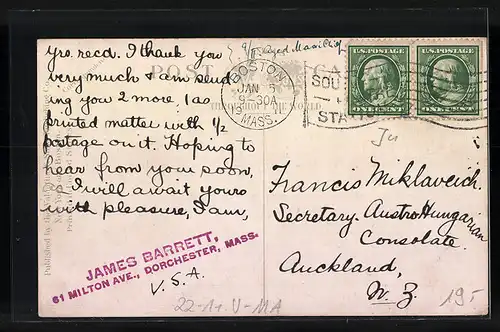 yrs. recd. I thank you
very much & am send
ing you 2 more, 1 as
printed matter with 1/2
postage on it. Hoping to
hear from you soon,
I will await yours
with pleasure, I am,
JAMES BARRETT,
61 MILTON AVE., DORCHESTER, MASS.
U.S.A.
POST CA
BOSTON
JAN 5
9-30A
MASS.
SOU
STATIO
U.S. POSTAGE
ONE CENT
U.S. POSTAGE
ONE CENT
Francis Miklaveich.
Secretary. Austro Hungarian
Consolate.
Auckland,
N. Z.
22-1+ U-MA
19.-